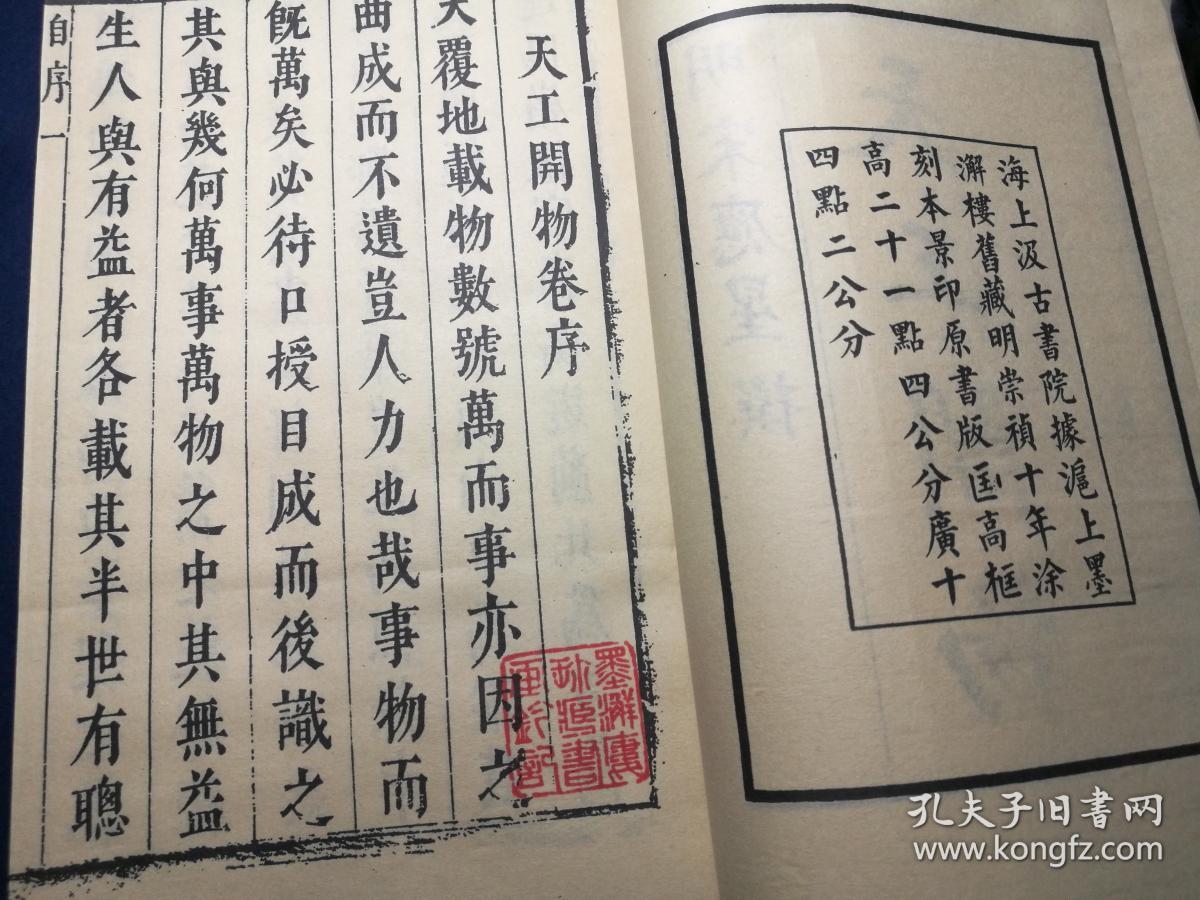 海上汲古書院據滬上墨
澥樓舊藏明崇禎十年涂
刻本景印原書版匡高框
高二十一點四公分廣十
四點二公分
天工開物卷序
天覆地載物數號萬而事亦因之
曲成而不遺豈人力也哉事物而
旣萬矣必待口授目成而後識之
其與幾何萬事萬物之中其無益
生人與有益者各載其半世有聰
自序
一
孔夫子旧书网
www.kongfz.com